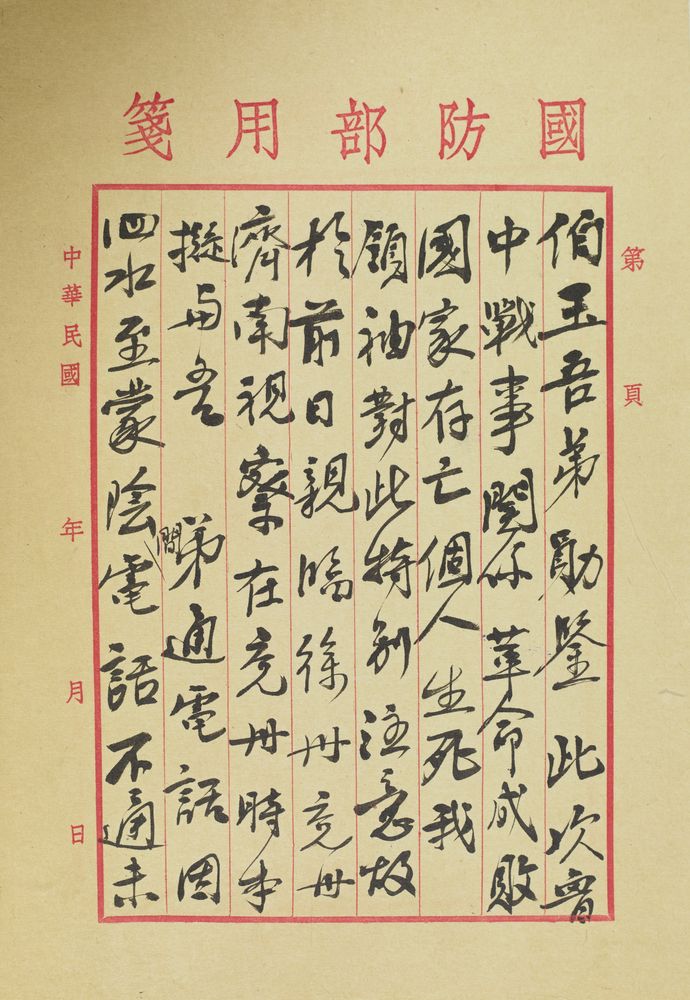 國防部用箋
第 頁
伯玉吾弟勛鑒此次魯
中戰事關係革命成敗
國家存亡個人生死我
領袖對此特別注意故
於前日親臨徐州兗州
濟南視察在兗州時本
擬与吾 弟通電話因
泗水至蒙陰間電話不通未
中華民國 年 月 日